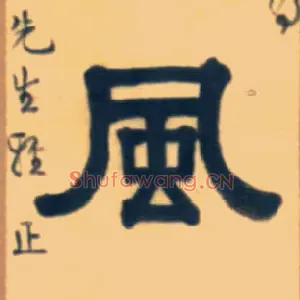 風
先生政正
Shufawang.CN